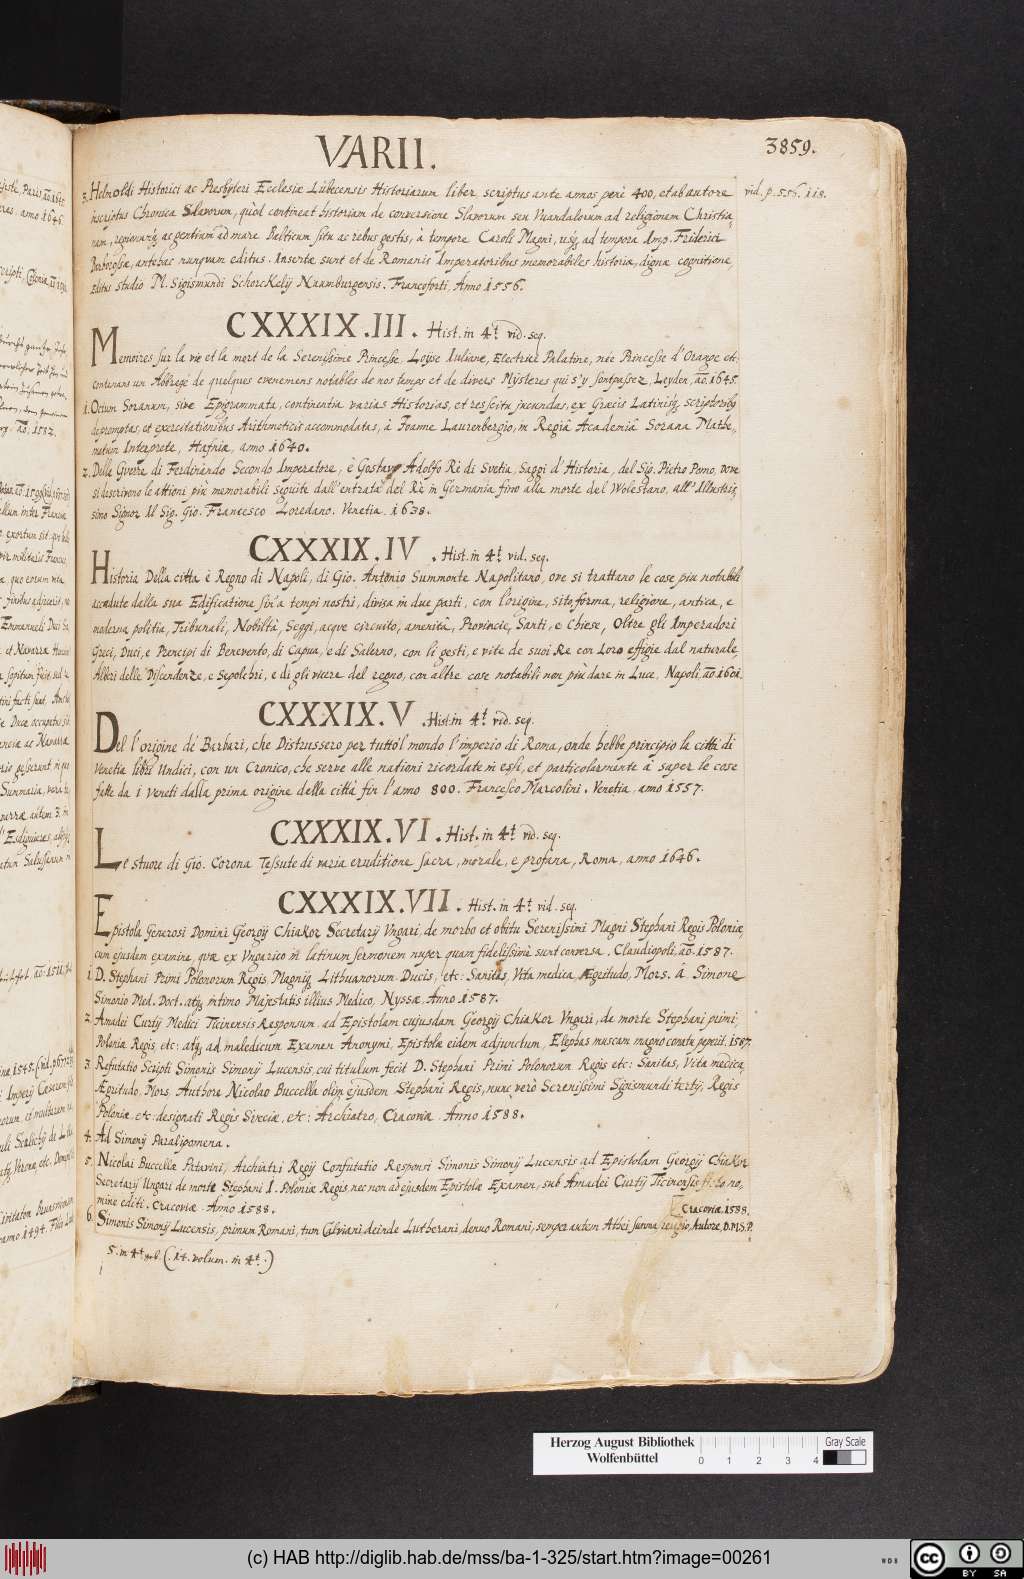 VARII.
3859.
5. Helmoldi Historici ac Presbyteri Ecclesiæ Lubecensis Historiarum liber scriptus ante annos penè 400, et ab autore
vid. p. 556. 118.
inscriptus Chronica Slavorum, quòd contineat historiam de conversione Slavorum seu Vuandalorum ad religionem Christia-
nam, regionumq, ac gentium ad mare Balticum situ ac rebus gestis, à tempore Caroli Magni, usq, ad tempora Imp. Friderici
Barbarossæ, antehac nunquam editus. Insertæ sunt et de Romanis Imperatoribus memorabiles historiæ, dignæ cognitione
editus studio M. Sigismundi Schorckelij Naumburgensis. Francoforti, Anno 1556.
CXXXIX.III. Hist. in 4t. vid. seq.
Memoires sur la vie et la mort de la Serenissime Princesse, Loyse Iuliane, Electrice Palatine, née Princesse d'Orange etc
contenans un Abbregé de quelques evenemens notables de nos temps et de divers Mÿsteres qui s'y sont passez, Leyden, aõ. 1645.
1. Otium Soranum, sive Epigrammata, continentia varias Historias, et res scitu jucundas, ex Græcis Latinisq, scriptorib9
depromptas, et exercitationibus Arithmeticis accommodatas, à Joanne Laurenbergio, in Regiâ Academiâ Sorana Mathe-
matum Interprete, Hafniæ, anno 1640.
2. Delle Guerre di Ferdinando Secondo Imperatore, è Gostavo Adolfo Rè di Svetia, Saggi d'Historia, del Sig. Pietro Pomo, Dove
si descrivono le attioni più memorabili seguite dall'entrata del Rè in Germania fino alla morte del Wolestano, all'Illustris-
simo Signor Il Sig. Gio. Francesco Loredano. Venetia. 1638.
CXXXIX.IV. Hist. in 4t. vid. seq.
Historia Della citta è Regno di Napoli, di Gio. Antonio Summonte Napolitano, ove si trattano le cose piu notabili
accadute dalla sua Edificatione fin'a tempi nostri, divisa in due parti, con l'origine, sito, forma, religione, antica, e
moderna politia, Tribunali, Nobiltà, Seggi, acque circuito, amenità, Provincie, Santi, e Chiese, Oltre gli Imperadori
Greci, Duci, e Prencipi di Benevento, di Capua, e di Salerno, con li gesti, e vite de suoi Re con Loro effigie dal naturale,
Alberi delle Discendenze, e Sepolchri, e di gli vicere del regno, con altre cose notabili non più dare in Luce, Napoli, aõ. 1601.
CXXXIX.V. Hist. in 4t. vid. seq.
Del l'origine de' Barbari, che Distrussero per tutto'l mondo l'imperio di Roma, onde hebbe principio la città di
Venetia libri Undici, con un Cronico, che serve alle nationi ricordate in essi, et particolarmante à saper le cose
fatte da i Veneti dalla prima origine della città fin l'anno 800. Francesco Marcolini. Venetia, anno 1557.
CXXXIX.VI. Hist. in 4t. vid. seq.
Le stuore di Gio. Corona Tessute di varia eruditione sacra, morale, e profana, Roma, anno 1646.
CXXXIX.VII. Hist. in 4t. vid. seq.
Epistola Generosi Domini Georgij Chiakor Secretarij Vngari, de morbo et obitu Serenissimi Magni Stephani Regis Poloniæ
cum ejusdem examine, quæ ex Vngarico in latinum sermonem nuper quam fidelissimè sunt conversa, Claudiopoli, aõ. 1587.
1. D. Stephani Primi Polonorum Regis, Magniq, Lithuanorum Ducis, etc. Sanitas, Vita medica, Ægritudo, Mors. à Simone
Simonio Med. Doct. atq, intimo Majestatis illius Medico, Nyssæ Anno 1587.
2. Amadei Curtij Medici Ticinensis Responsum, ad Epistolam cujusdam Georgij Chiakor Vngari, de morte Stephani primi,
Poloniæ Regis, etc: atq, ad maledicum Examen Anonymi, Epistolæ eidem adjunctum, Elephas muscam magno conatu peperit. 1587.
3. Refutatio Scripti Simonis Simonij Lucensis, cui titulum fecit D. Stephani Primi Polonorum Regis etc: Sanitas, Vita medica,
Ægritudo, Mors, Authore Nicolao Buccella olim ejusdem Stephani Regis, nunc verò Serenissimi Sigismundi tertij, Regis
Poloniæ etc. designati Regis Sueciæ, etc: Archiatro, Cracoviæ. Anno 1588.
4. Ad Simonij Paralipomena.
5. Nicolai Buccellæ Patavini, Archiatri Regij Confutatio Responsi Simonis Simonij Lucensis ad Epistolam Georgij Chiakor
Secretarij Ungari de morte Stephani I. Poloniæ Regis, nec non ad ejusdem Epistolæ Examen, sub Amadei Curtij Ticinensis ficto no-
mine editi. Cracoviæ. Anno 1588.
Cracoviæ. 1588.
6. Simonis Simonij Lucensis, primum Romani, tum Calviani, deinde Lutherani, denuo Romani, semper autem Athei, summa religio, Autore, D.M.S.P.
5. in 4t (. 14. volum. in 4t.)
Herzog August Bibliothek
Wolfenbüttel
0 1 2 3 4
Gray Scale
(c) HAB http://diglib.hab.de/mss/ba-1-325/start.htm?image=00261
WDB
cc BY SA